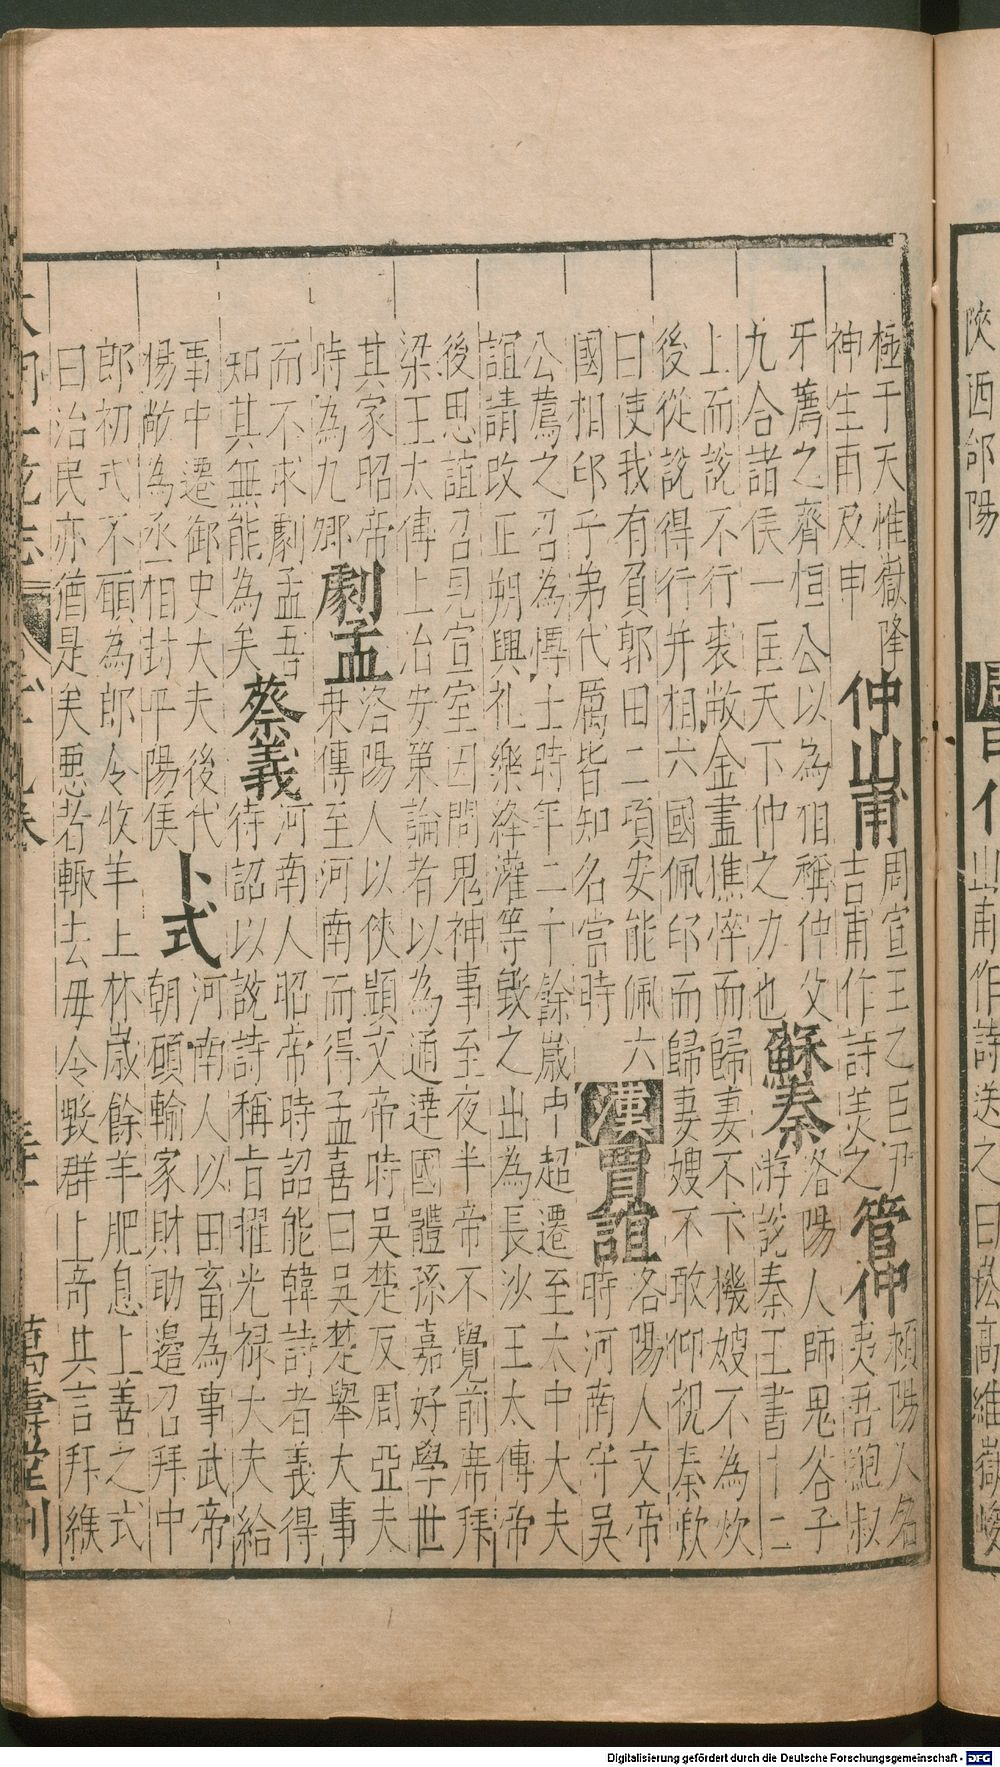 陝西郃陽
山甫作詩送之曰崧高維嶽峻
極于天惟嶽降
神生甫及申
仲山甫
周宣王之臣尹
吉甫作詩美之
管仲
潁陽人名
夷吾鮑叔
牙薦之齊恒公以為相稱仲父
九合諸侯一匡天下仲之力也
蘇秦
洛陽人師鬼谷子
游說秦王書十二
上而說不行裘敝金盡憔悴而歸妻不下機嫂不為炊
後從說得行并相六國佩印而歸妻嫂不敢仰視秦歎
曰使我有負郭田二項安能佩六
國相印乎弟代厲皆知名當時
漢賈誼
洛陽人文帝
時河南守吳
公薦之召為博士時年二十餘歲中超遷至太中大夫
誼請改正朔興礼樂絳灌等毀之出為長沙王太傅帝
後思誼召見宣室因問鬼神事至夜半帝不覺前席拜
梁王太傅上治安策論者以為通達國體孫嘉好學世
其家昭帝
時為九卿
劇孟
洛陽人以俠顯文帝時吳楚反周亞夫
乗傳至河南而得孟喜曰吳楚舉大事
而不求劇孟吾
知其無能為矣
蔡義
河南人昭帝時詔能韓詩者義得
待詔以說詩稱旨擢光禄大夫給
事中遷御史大夫後代
楊敞為丞相封平陽侯
卜式
河南人以田畜為事武帝
朝願輸家財助邊召拜中
郎初式不願為郎令收羊上林歲餘羊肥息上善之式
曰治民亦猶是矣悪者輙去毋令毀群上奇其言拜緱
大明一統志 三十 萬壽堂刊
Digitalisierung gefördert durch die Deutsche Forschungsgemeinschaft - DFG